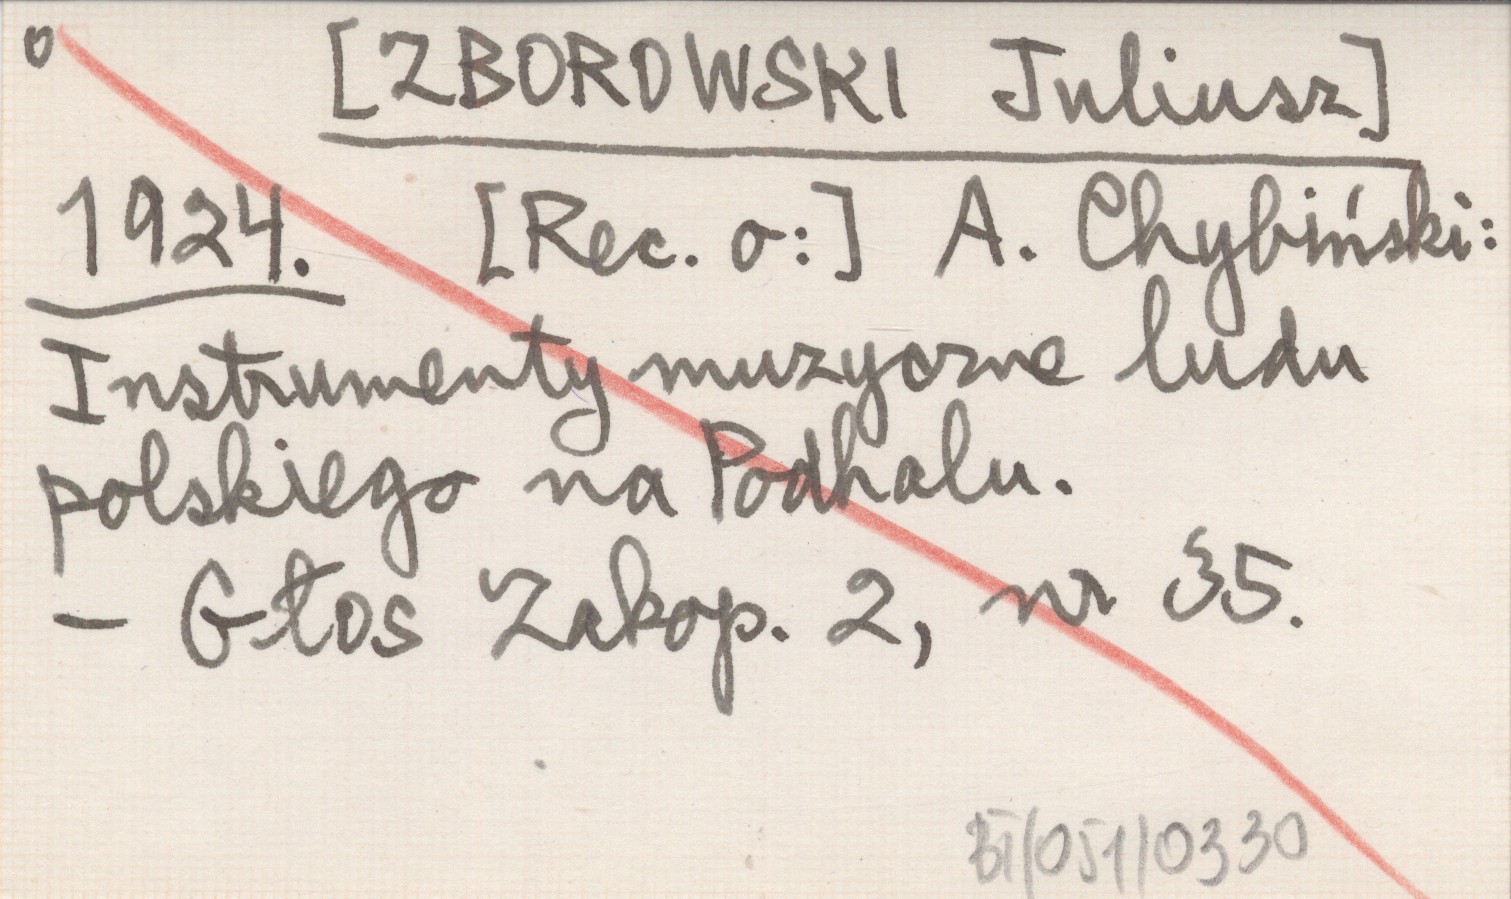 o [ZBOROWSKI Juliusz]
1924. [Rec. o:] A. Chybiński:
Instrumenty muzyczne ludu
polskiego na Podhalu.
– Głos Zakop. 2, nr 35.
BI/051/0330